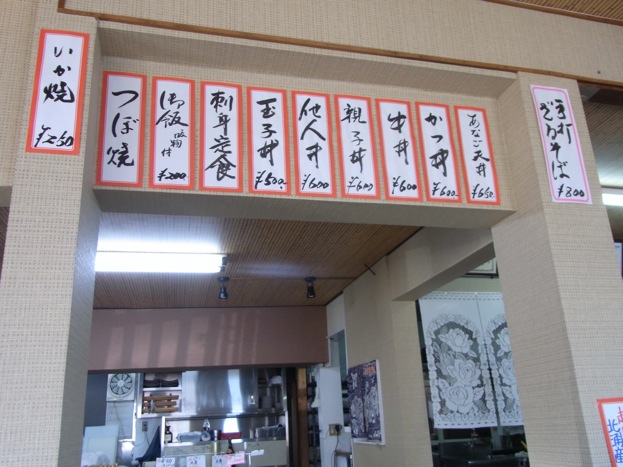 いか焼
¥250
つぼ焼
御飯
吸物付
¥200
刺身定食
玉子丼
¥500.
他人丼
¥600
親子丼
¥600
牛丼
¥600
かつ丼
¥600.
あなご天丼
¥650
手打
ざるそば
¥800
北海産